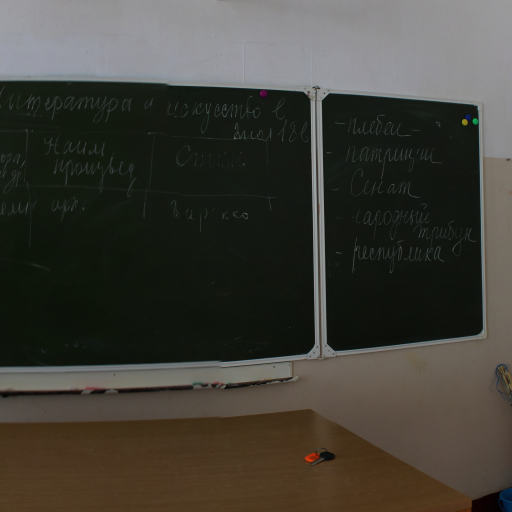 Литература и искусство в
18 в
Наим
произвед
Стили
арх.
Барокко
- плебеи -
- патриции
- Сенат
- народный
трибун
- республика